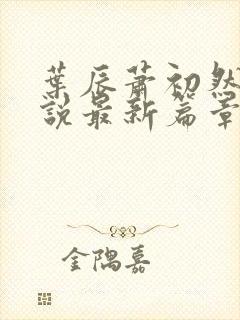 葉辰蕭初然
說最新篇章
金隅嘉